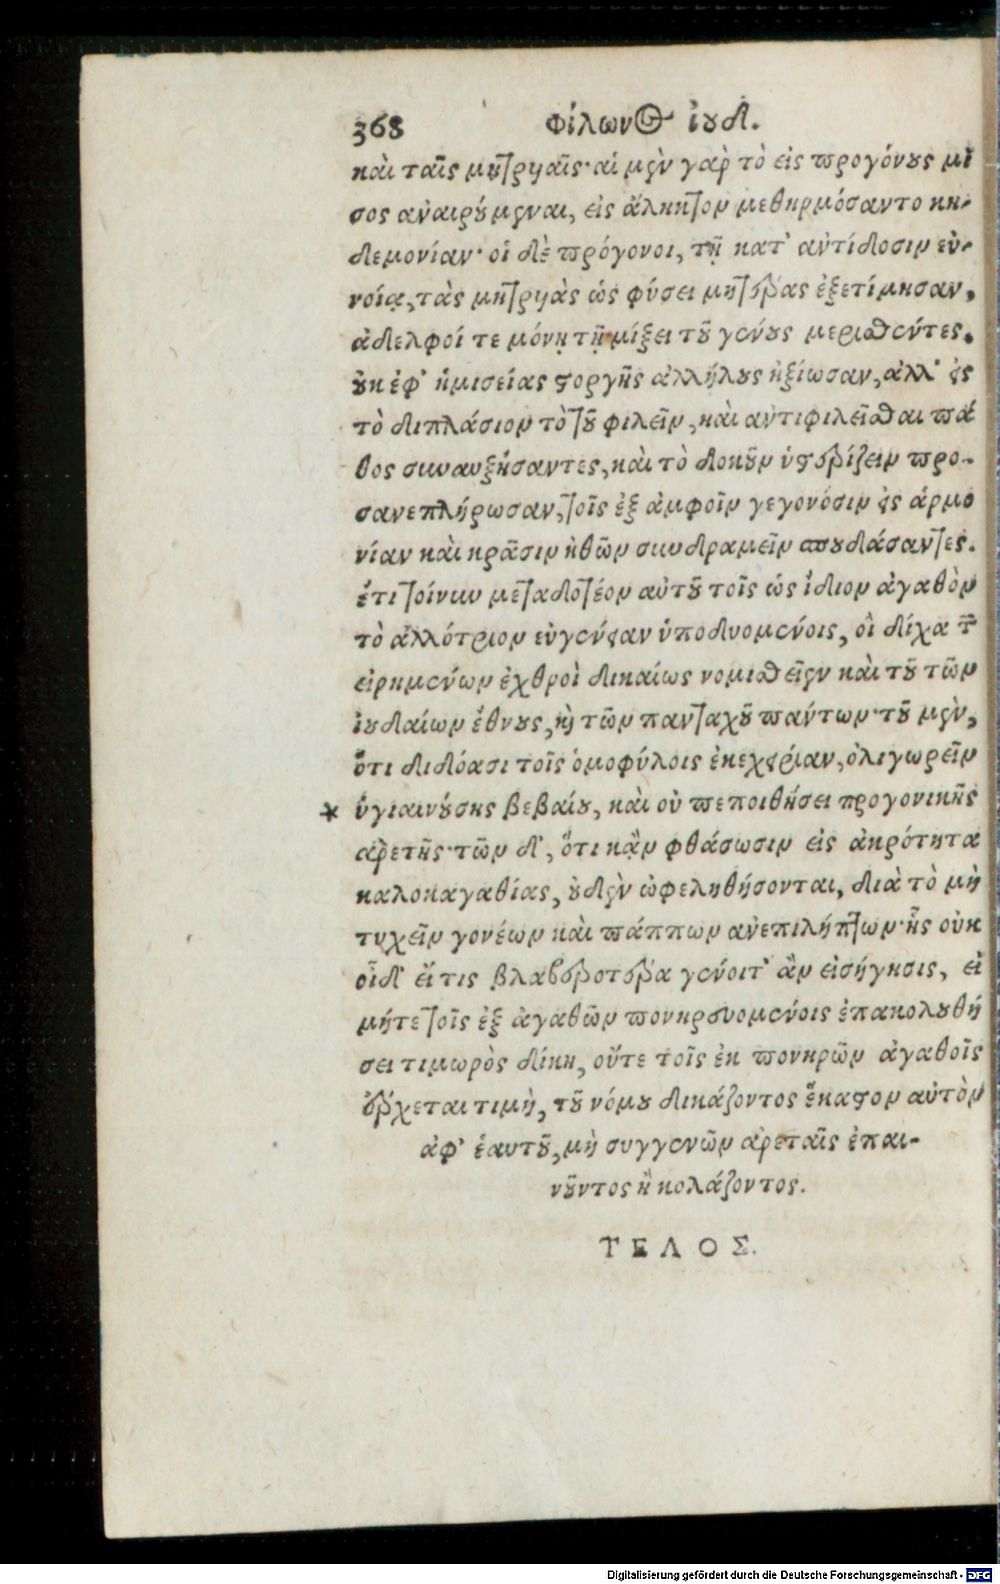 368 Φίλωνος ἰουδ.
καὶ ταῖς μητρυιαῖς· αἱ μὲν γὰρ τὸ εἰς προγόνους μῖ
σος ἀναιρούμεναι, εἰς ἄληκτον μεθηρμόσαντο κη-
δεμονίαν· οἱ δὲ πρόγονοι, τῇ κατ' ἀντίδοσιν εὐ-
νοίᾳ, τὰς μητρυιὰς ὡς φύσει μητέρας ἐξετίμησαν,
ἀδελφοί τε μόνῃ τῇ μίξει τοῦ γένους μερισθέντες.
οὐκ ἐφ' ἡμισείας στοργῆς ἀλλήλους ἠξίωσαν, ἀλλ' εἰς
τὸ διπλάσιον τὸ τοῦ φιλεῖν, καὶ ἀντιφιλεῖσθαι πά
θος συναυξήσαντες, καὶ τὸ δοκοῦν ὑστερίζειν προ-
σανεπλήρωσαν, τοῖς ἐξ ἀμφοῖν γεγονόσιν εἰς ἁρμο
νίαν καὶ κρᾶσιν ἠθῶν συνδραμεῖν σπουδάσαντες.
ἔτι τοίνυν μεταδοτέον αὐτοῦ τοῖς ὡς ἴδιον ἀγαθὸν
τὸ ἀλλότριον εὐγένειαν ὑποδυομένοις, οἳ δίχα τῶν
εἰρημένων ἐχθροὶ δικαίως νομισθεῖεν καὶ τοῦ τῶν
ἰουδαίων ἔθνους, καὶ τῶν πανταχοῦ πάντων· τοῦ μὲν,
ὅτι διδόασι τοῖς ὁμοφύλοις ἐκεχειρίαν, ὀλιγωρεῖν
* ὑγιαινούσης βεβαίου, καὶ οὐ πεποιθήσει προγονικῆς
ἀρετῆς· τῶν δ', ὅτι κἂν φθάσωσιν εἰς ἀκρότητα
καλοκαγαθίας, οὐδὲν ὠφεληθήσονται, διὰ τὸ μὴ
τυχεῖν γονέων καὶ πάππων ἀνεπιλήπτων· ἧς οὐκ
οἶδ' εἴ τις βλαβερωτέρα γένοιτ' ἂν εἰσήγησις, εἰ
μήτε τοῖς ἐξ ἀγαθῶν πονηρευομένοις ἐπακολουθή
σει τιμωρὸς δίκη, οὔτε τοῖς ἐκ πονηρῶν ἀγαθοῖς
ἕρχεται τιμὴ, τοῦ νόμου δικάζοντος ἕκαστον αὐτὸν
ἀφ' ἑαυτοῦ, μὴ συγγενῶν ἀρεταῖς ἐπαι-
νοῦντος ἢ κολάζοντος.
ΤΕΛΟΣ.
Digitalisierung gefördert durch die Deutsche Forschungsgemeinschaft - DFG